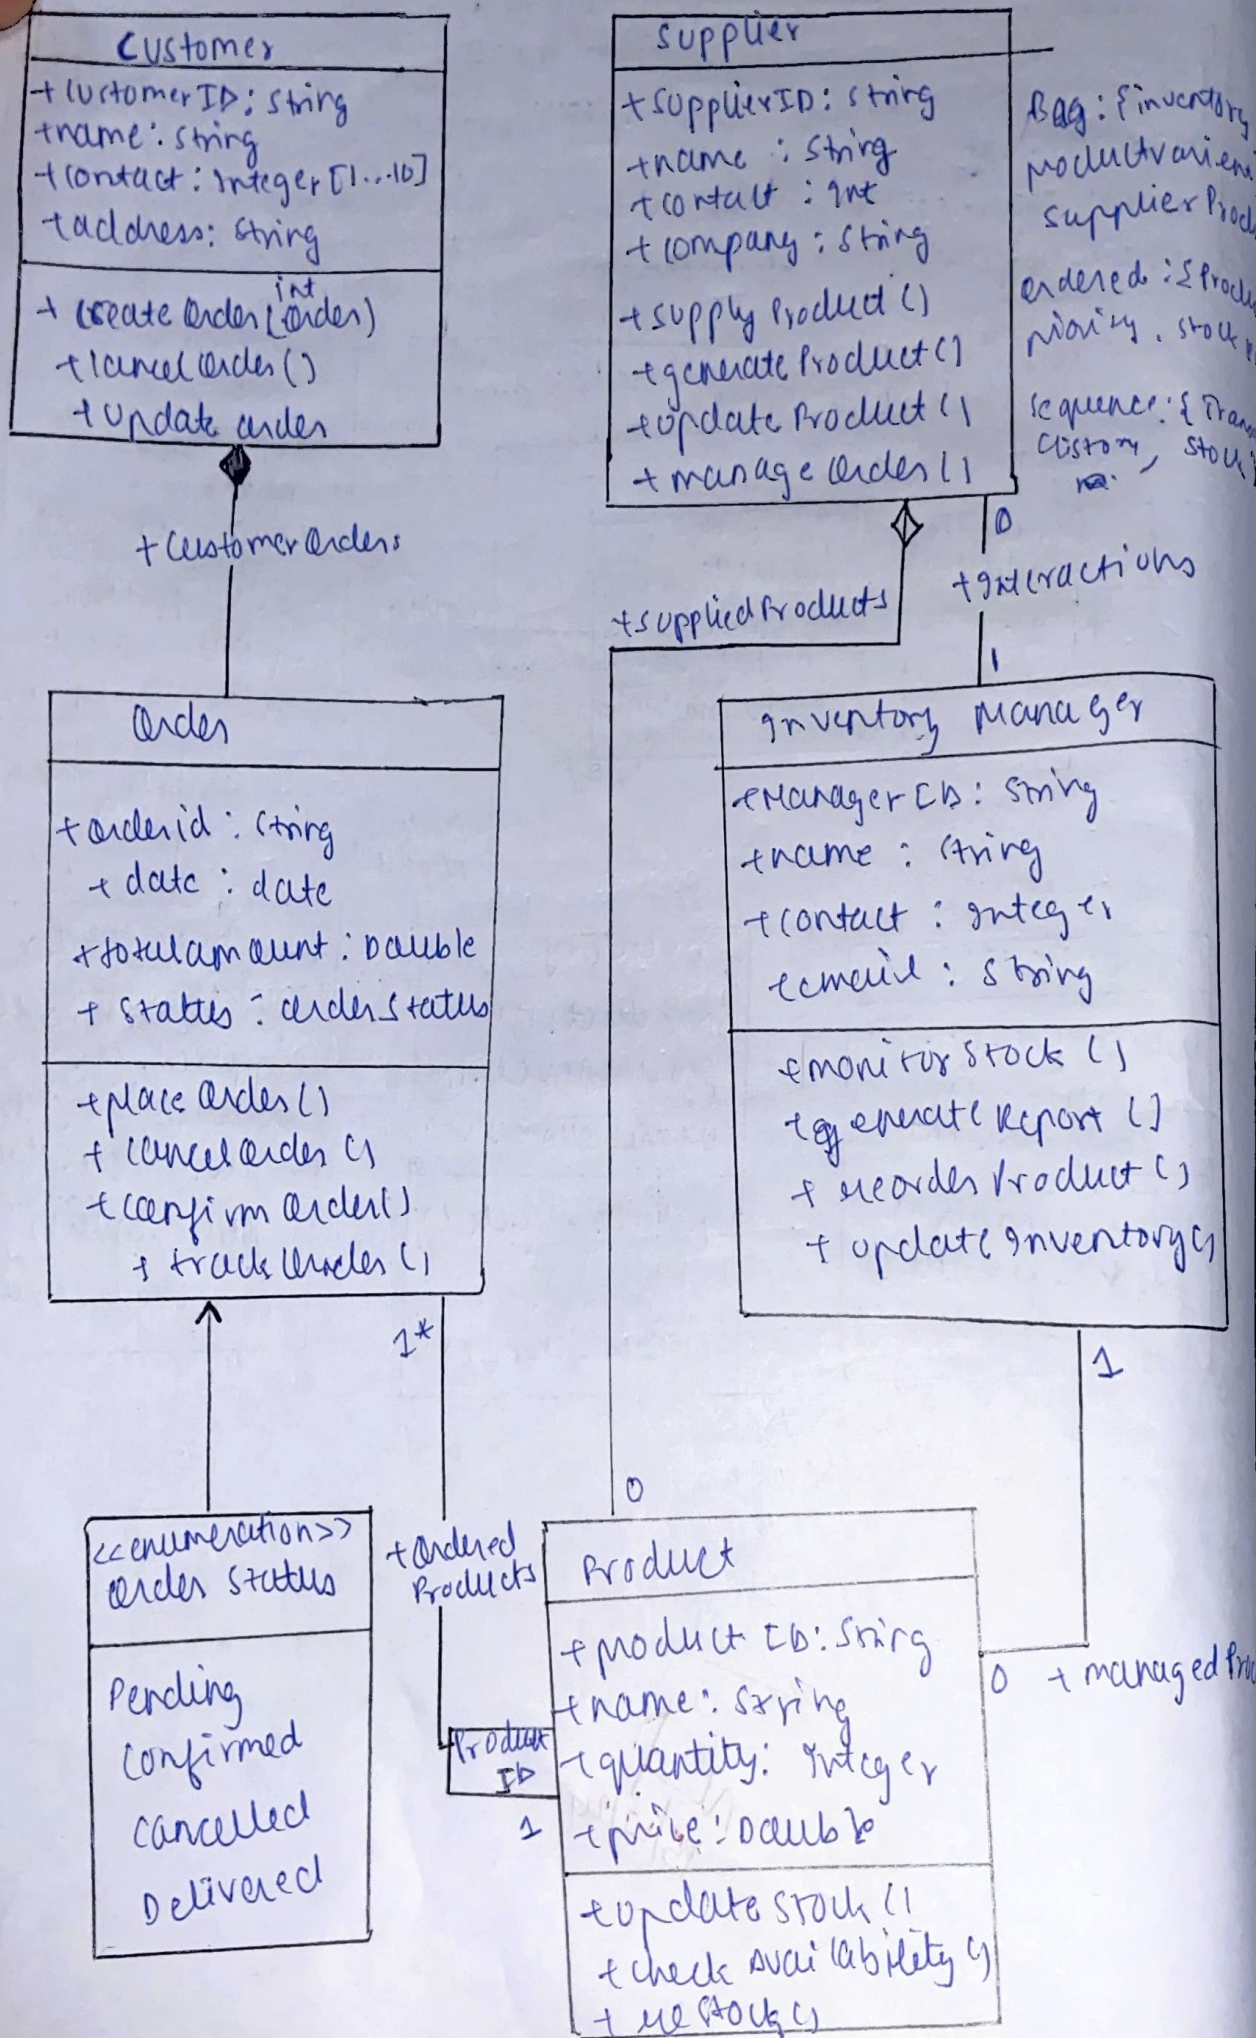 Customer
+CustomerID: String
+name: String
+contact: Integer [1...10]
+address: String
int
+ Create Order (Order)
+Cancel Order ()
+Update order
+CustomerOrders
Supplier
+SupplierID: String
+name : String
+contact : Int
+company : String
+supply Product ()
+generate Product ()
+update Product ()
+manage Order ()
Bag : {inventory
supplier
ordered : {
priority, stock
sequence : {
custom, stock
0
+Interactions
+suppliedProducts
1
Order
+orderid : String
+ date : date
+totalamount : Double
+ status : orderstatus
+place Order ()
+ cancel order ()
+confirm Order()
+ track Order ()
Inventory Manager
+Manager ID : String
+name : String
+contact : Integer
+email : String
+monitor Stock ()
+generate Report ()
+ reorder Product ()
+ update Inventory ()
1*
1
0
<<enumeration>>
Order Status
Pending
Confirmed
Cancelled
Delivered
+Ordered
Products
Product
ID
1
Product
+product ID: String
+name: String
+quantity: Integer
+price: Double
+update stock ()
+check Availability ()
+ restock ()
0
+ managed